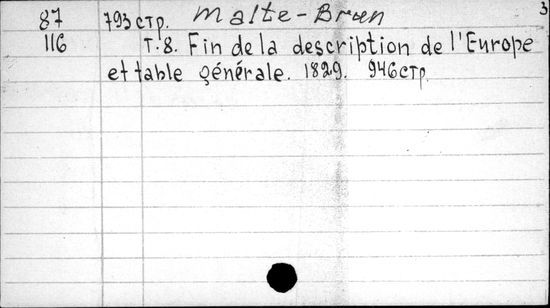 87 793 стр. Malte-Brun 3
116 т.8. Fin de la description de l'Europe
et table générale. 1829. 946 стр.